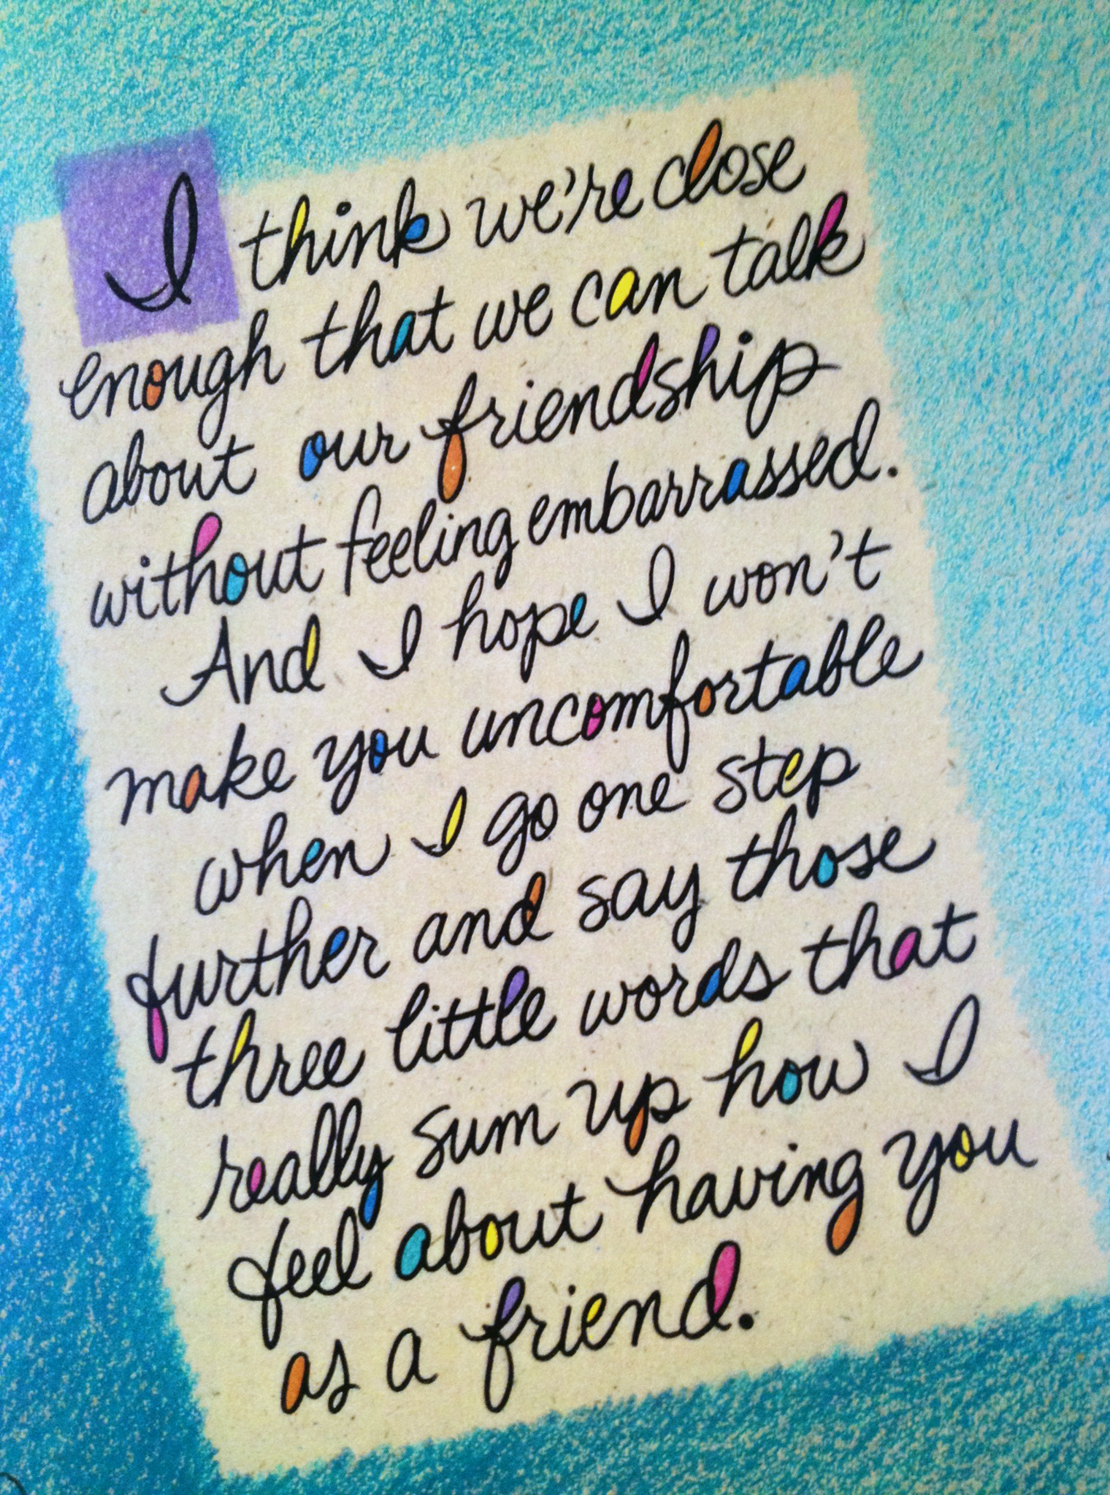 I think we're close
enough that we can talk
about our friendship
without feeling embarrassed.
And I hope I won't
make you uncomfortable
when I go one step
further and say those
three little words that
really sum up how I
feel about having you
as a friend.